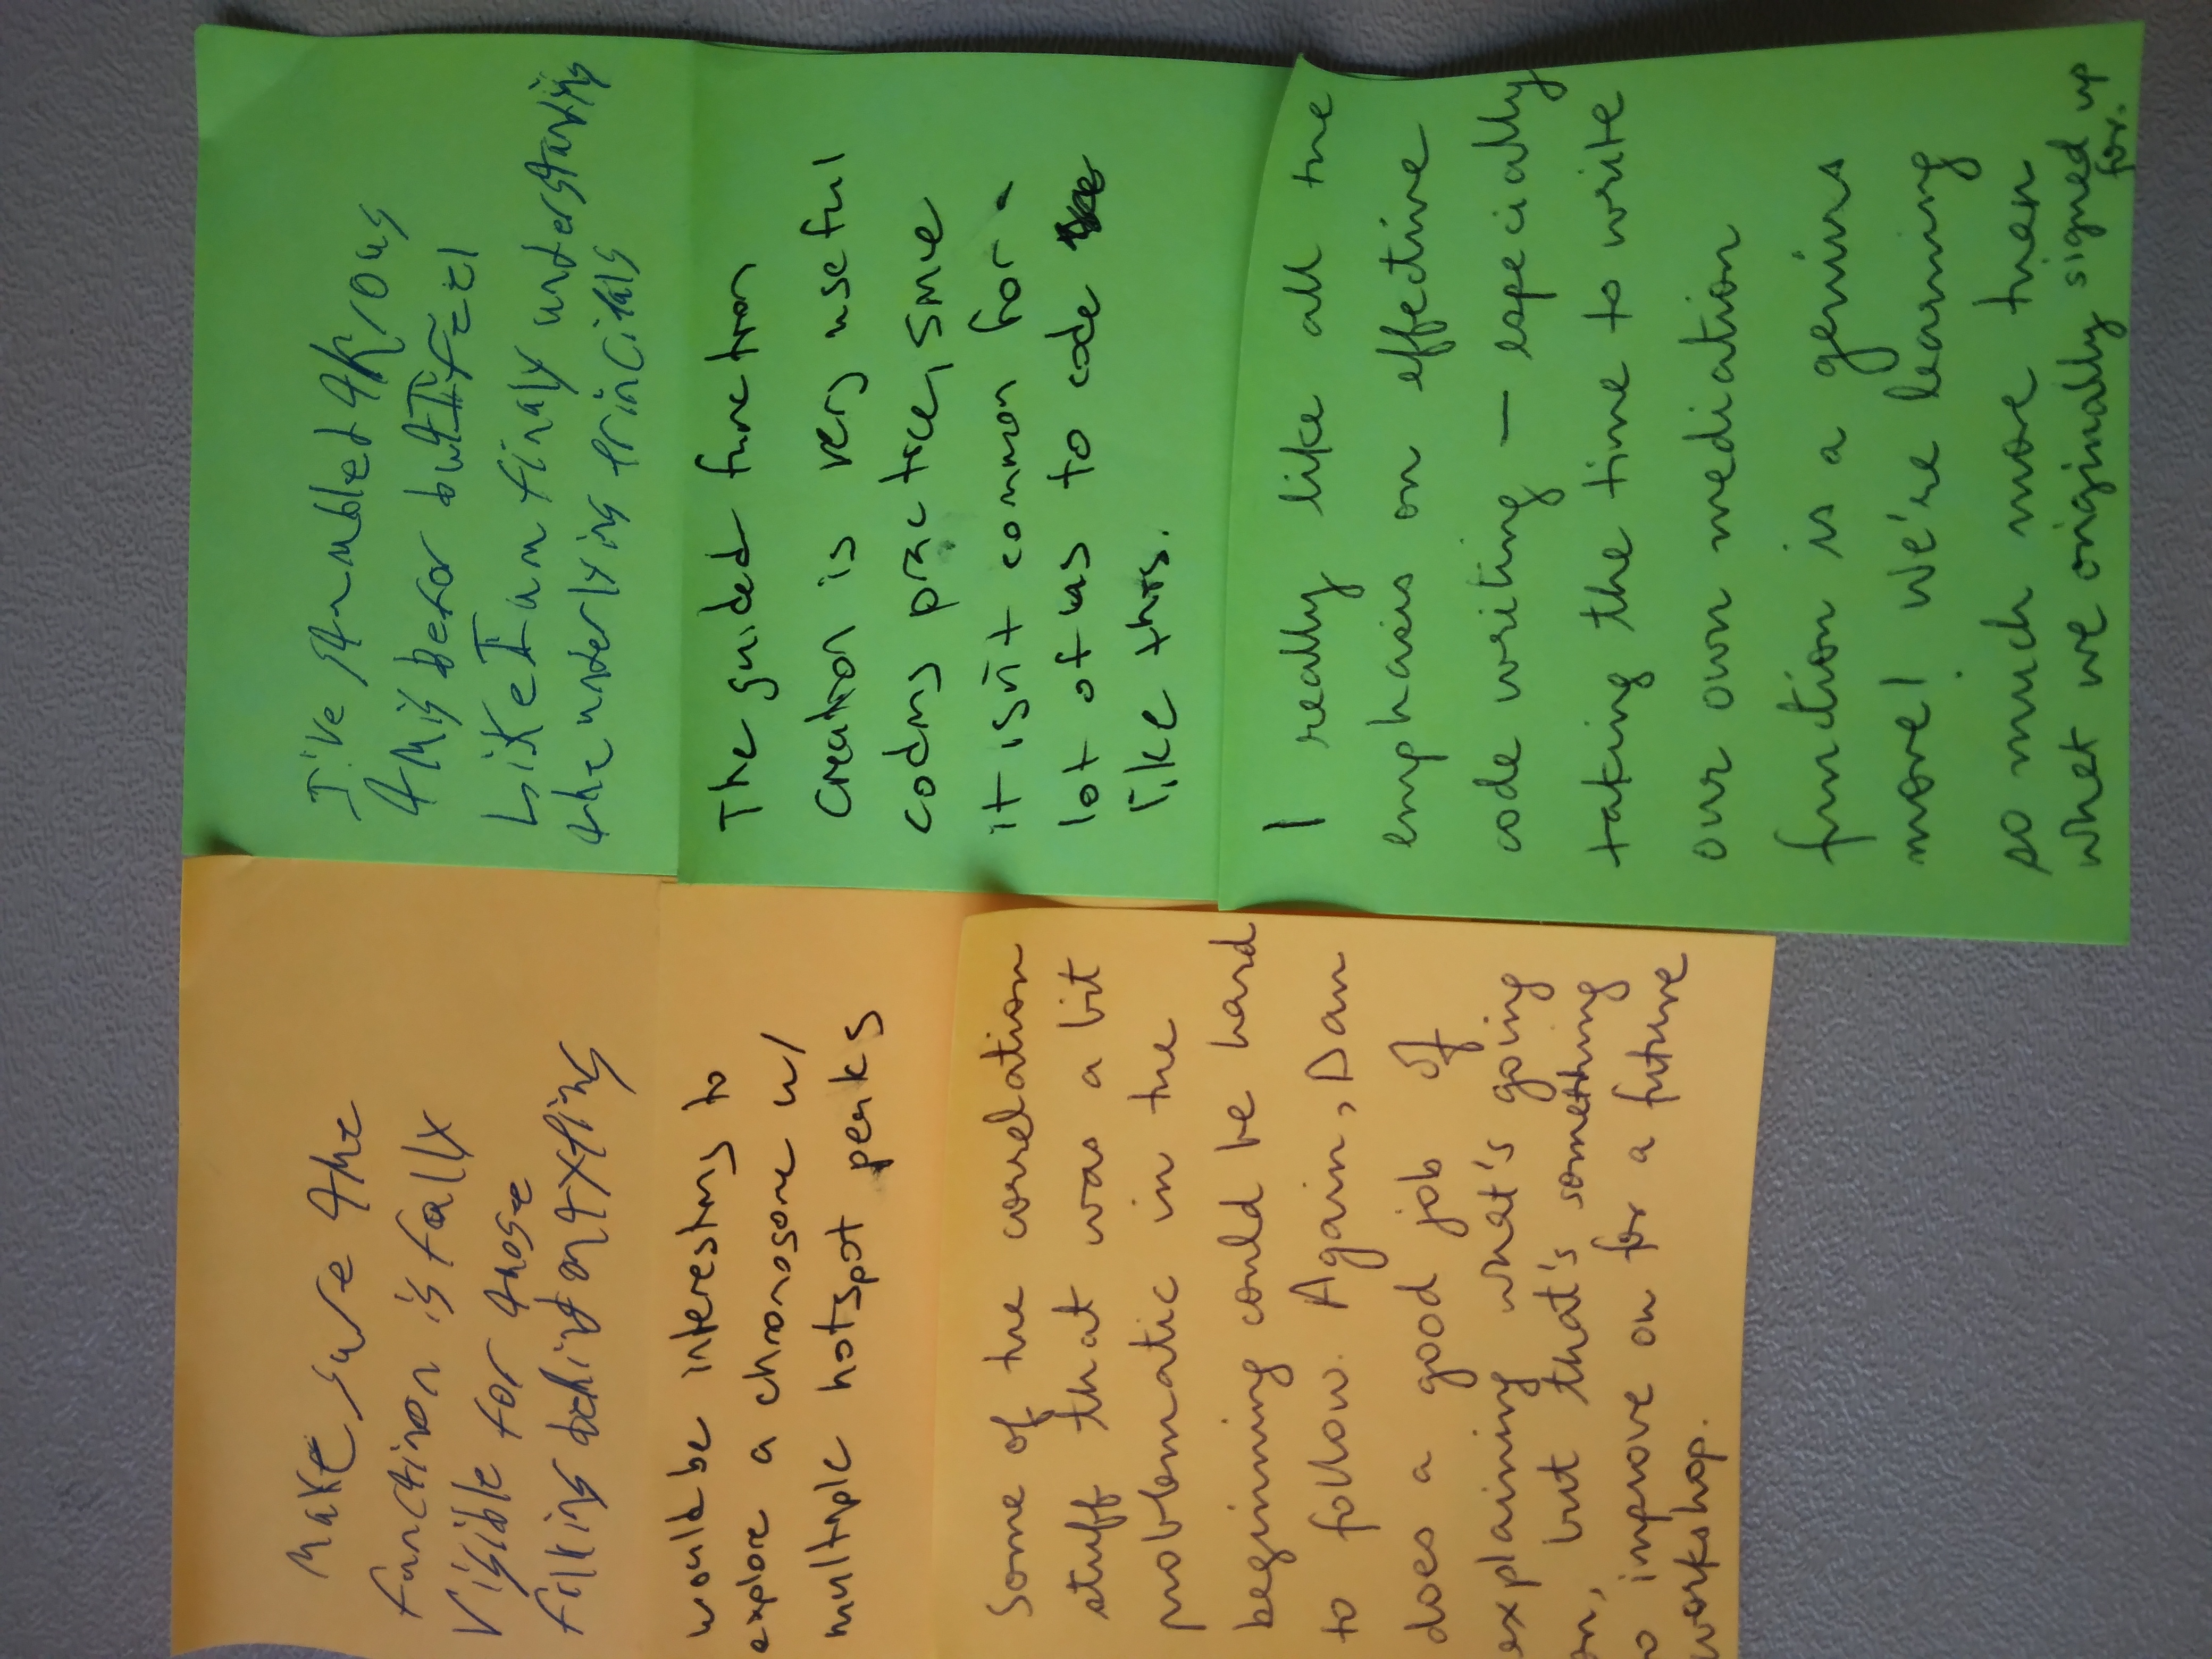 Make sure the
function is fully
visible for those
falling behind on typing
would be interesting to
explore a chromosome w/
multiple hotspot peaks
Some of the correlation
stuff that was a bit
problematic in the
beginning could be hard
to follow. Again, Dan
does a good job of
explaining what's going
on, but that's something
to improve on for a future
workshop.
I've stumbled akrous
this befor but I feel
Like I am finaly understanding
the underlying principals
The guided function
creation is very useful
coding practice, since
it isn't common for a
lot of us to code
like this.
I really like all the
emphasis on effective
code writing — especially
taking the time to write
our own mediation
function is a genius
move! We're learning
so much more than
what we originally signed up
for.